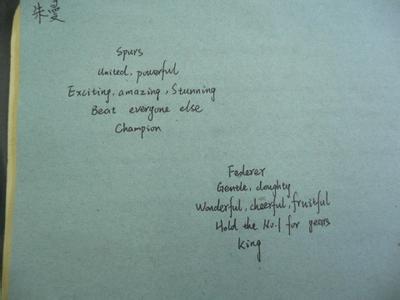 朱曼
Spurs
united, powerful
Exciting, amazing, Stunning
Beat everyone else
Champion
Federer
Gentle, doughty
Wonderful, cheerful, fruitful
Hold the No.1 for years
King